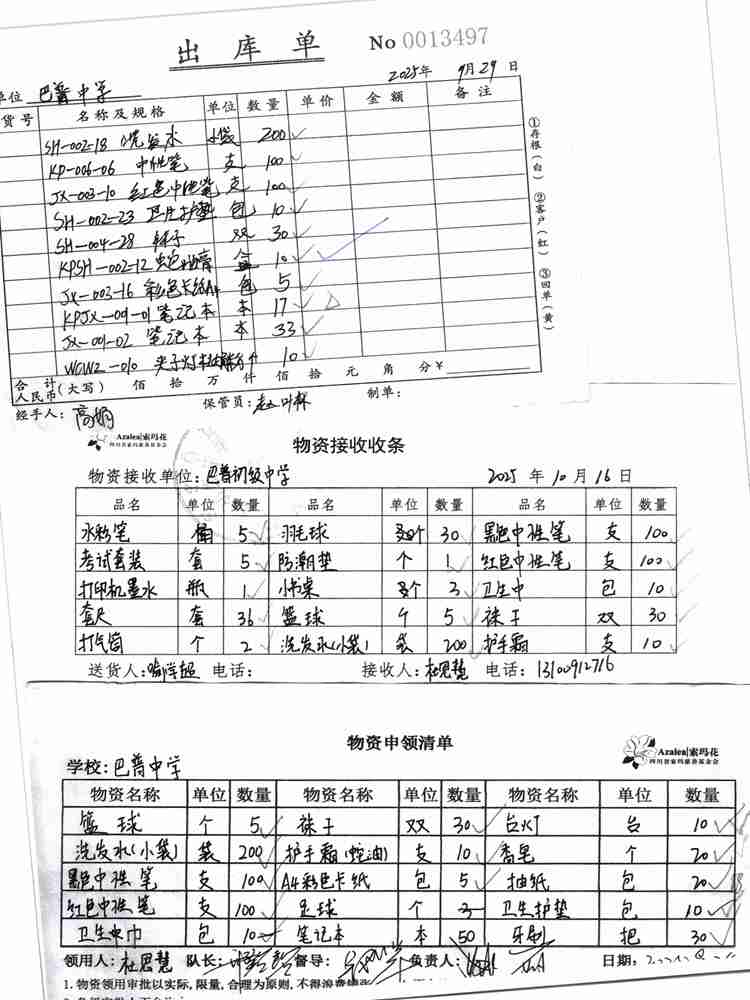 出库单 No 0013497
2025年 9月29日
单位 巴普中学
货号 名称及规格 单位 数量 单价 金额 备注
SH-002-18 洗发水 小袋 200
KP-006-06 中性笔 支 100
JX-003-10 红色中性笔 支 100
SH-002-23 卫生护垫 包 10
SH-004-28 袜子 双 30
KPSH-002-12 蛇油膏 盒 10
JX-003-16 彩色卡纸A4 包 5
KPJX-001-01 笔记本 本 17
JX-001-02 笔记本 本 33
WCWZ-010 夹子灯 个 10
合计人民币(大写) 佰 拾 万 仟 佰 拾 元 角 分 ¥
经手人: 高娟 保管员: 制单:
①存根(白) ②客户(红) ③回单(黄)
Azalea|索玛花
四川省索玛慈善基金会
物资接收收条
物资接收单位: 巴普初级中学 2025年10月16日
品名 单位 数量 品名 单位 数量 品名 单位 数量
水彩笔 5 羽毛球 个 30 黑色中性笔 支 100
考试套装 套 5 防潮垫 个 1 红色中性笔 支 100
打印机墨水 瓶 1 小书桌 个 3 卫生巾 包 10
套尺 套 36 篮球 个 5 袜子 双 30
打气筒 个 2 洗发水(小袋) 袋 200 护手霜 支 10
送货人: 电话: 接收人: 杜思慧 电话: 13100912716
物资申领清单
Azalea|索玛花
四川省索玛慈善基金会
学校: 巴普中学
物资名称 单位 数量 物资名称 单位 数量 物资名称 单位 数量
篮球 个 5 袜子 双 30 台灯 台 10
洗发水(小袋) 袋 200 护手霜(蛇油) 支 10 香皂 个 20
黑色中性笔 支 100 A4彩色卡纸 包 5 抽纸 包 20
红色中性笔 支 100 足球 个 3 卫生护垫 包 10
卫生巾 包 10 笔记本 本 50 牙刷 把 30
领用人: 杜思慧 队长: 督导: 负责人: 日期:
1.物资领用审批以实际,限量,合理为原则,不得浪费